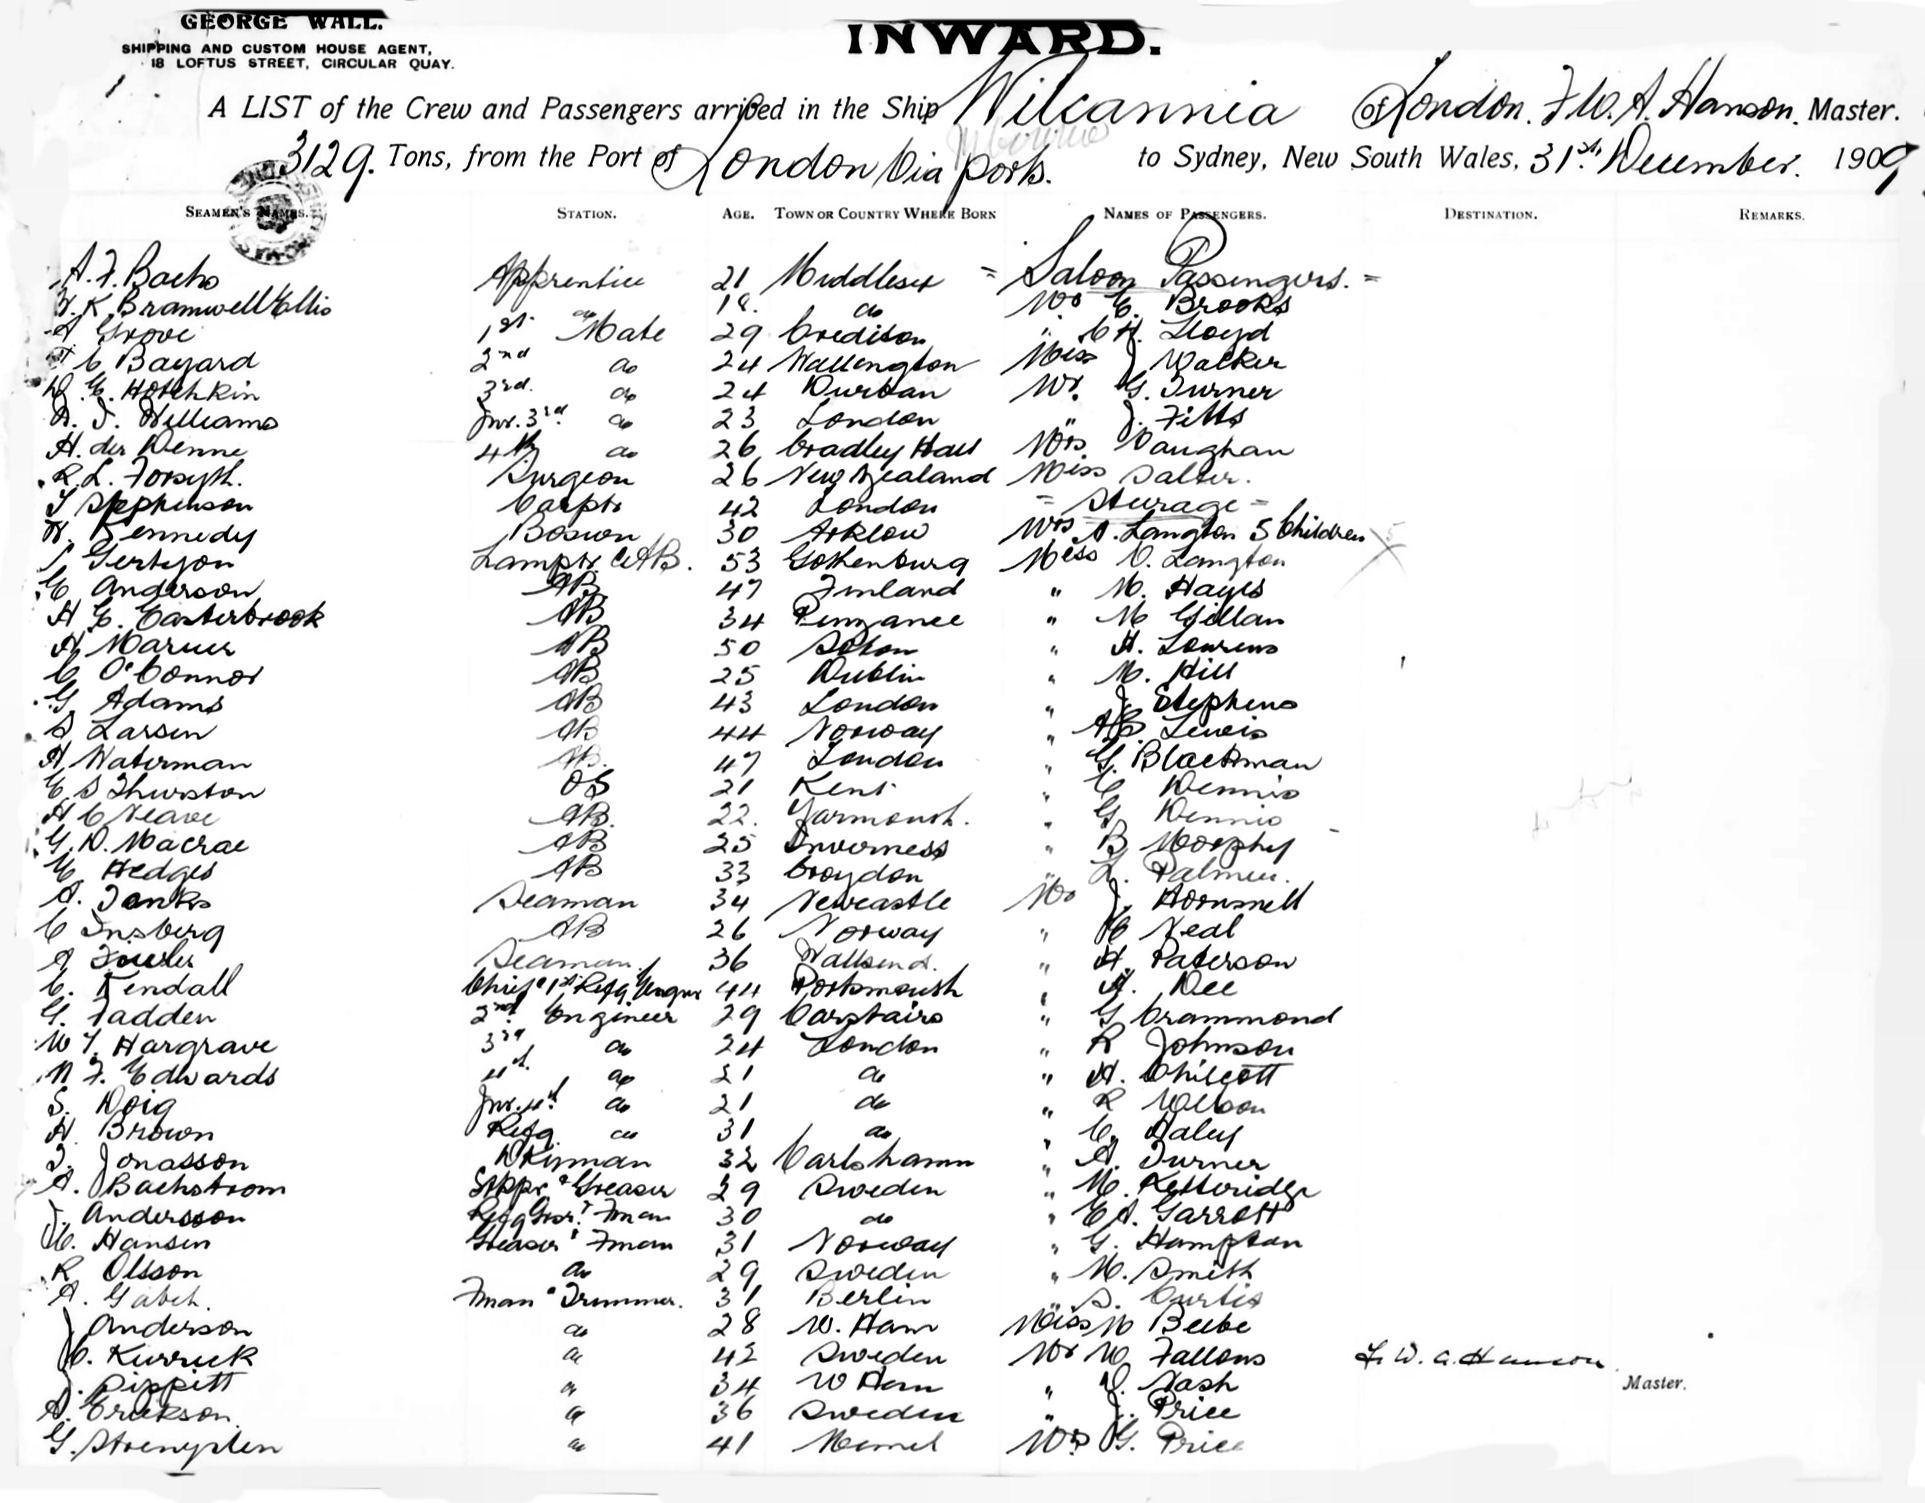 GEORGE WALL.
SHIPPING AND CUSTOM HOUSE AGENT,
18 LOFTUS STREET, CIRCULAR QUAY.
INWARD.
A LIST of the Crew and Passengers arrived in the Ship Wilcannia of London. F W. A. Hanson. Master.
3129. Tons, from the Port of London via ports. to Sydney, New South Wales, 31st December. 1909
SEAMEN'S NAMES. STATION. AGE. TOWN OR COUNTRY WHERE BORN NAMES OF PASSENGERS. DESTINATION. REMARKS.
A. F. Apprentice 21 Middlesex = Saloon Passengers. =
K. Bramwell Ellis do 18. do Mr E. Brooks
A Grove 1st Mate 29 Crediton " C H. Lloyd
C Bayard 2nd do 24 Wallington Miss J Walker
D. E. Hotchkin 3rd. do 24 Durban Mr. G. Turner
A. J. Williams Jnr. 3rd do 23 London " J. Fitts
H. der Wenne 4th do 26 Cradley Hall Mrs Vaughan
R. L. Forsyth. Surgeon 26 New Zealand Miss Salter.
T Stephenson Carptr 42 London = Steerage =
W. Kennedy Boswn 30 Arklow Mrs A. Langton 5 Children
Lamptr & AB. 53 Gothenburg Miss V. Langton
E Anderson AB 47 Finland " M. Hayes
H E. Easterbrook AB 34 Penzance " M Gillan
H Marner AB 50 Soton " H. Lourens
C O'Connor AB 25 Dublin " M. Hill
G Adams AB 43 London " J. Stephens
S Larsen AB 44 Norway " Lewis
H Waterman AB. 47 London " G. Blackman
E S Thurston OS 21 Kent " C Dennis
H C Neave AB. 22. Yarmouth. " G. Dennis
G. D. Macrae AB 25 Inverness " B Moorphy
E Hedges AB 33 Croydon " L. Palmer.
A. Jenks Seaman 34 Newcastle Mr J. Hornsnell
C Insberg AB 26 Norway " C Neal
A Fowler Seaman. 36 Wallsend. " H. Paterson
C. Kendall Chief & 1st Refg Engnr 44 Portsmouth " A. Dee
G. Fadden 2nd Engineer 29 Carstairs " G Crammond
W T. Hargrave 3rd do 24 London " R Johnson
N F. Edwards 4th do 21 do " H. Chilcott
S. Doig Jnr. 4th do 21 do " R Wilson
H. Brown Refg. do 31 do " C. Daley
J. Jonasson Dkyman 32 Carlshamn " A. Turner
A. Bachstrom Stppr & Greaser 29 Sweden " M. Ketteridge
J. Andersson Refg Gsr. & Fman 30 do " E A. Garrott
C. Hansen Greaser & Fman 31 Norway " G. Hampton
R Olsson do 29 Sweden " M. Smith
A. Gabch. Fman & Trimmer. 31 Berlin " S. Curtis
J Anderson do 28 W. Ham Miss M Beebe
C. Kurrick do 42 Sweden Mr W Fallons F. W. A. Hanson
J. Sippitt do 34 W Ham " J. Nash Master.
A. Erikson. do 36 Sweden " J. Price
G. do 41 Memel Mrs G. Price